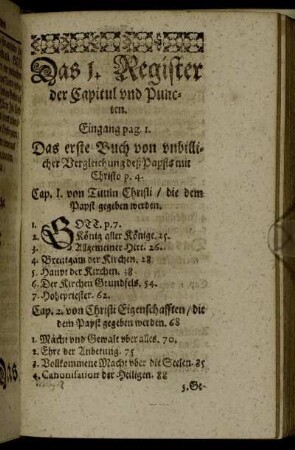 Das 1. Register
der Capitul vnd Punc-
ten.
Eingang pag. 1.
Das erste Buch von vnbilli-
cher Vergleichung deß Papsts mit
Christo p. 4.
Cap. I. von Tituln Christi / die dem
Papst gegeben werden.
1. GOTT. p. 7.
2. König aller Könige. 25.
3. Allgemeiner Hirt. 26.
4. Breutgam der Kirchen. 28
5. Haupt der Kirchen. 38
6. Der Kirchen Grundfels. 54.
7. Hohepriester. 62.
Cap. 2. von Christi Eigenschafften / die
dem Papst gegeben werden. 68
1. Macht vnd Gewalt vber alles. 70.
2. Ehre der Anbetung. 75
3. Vollkommene Macht vber die Seelen. 85
4. Canonisation der Heiligen. 88
5. Ge-